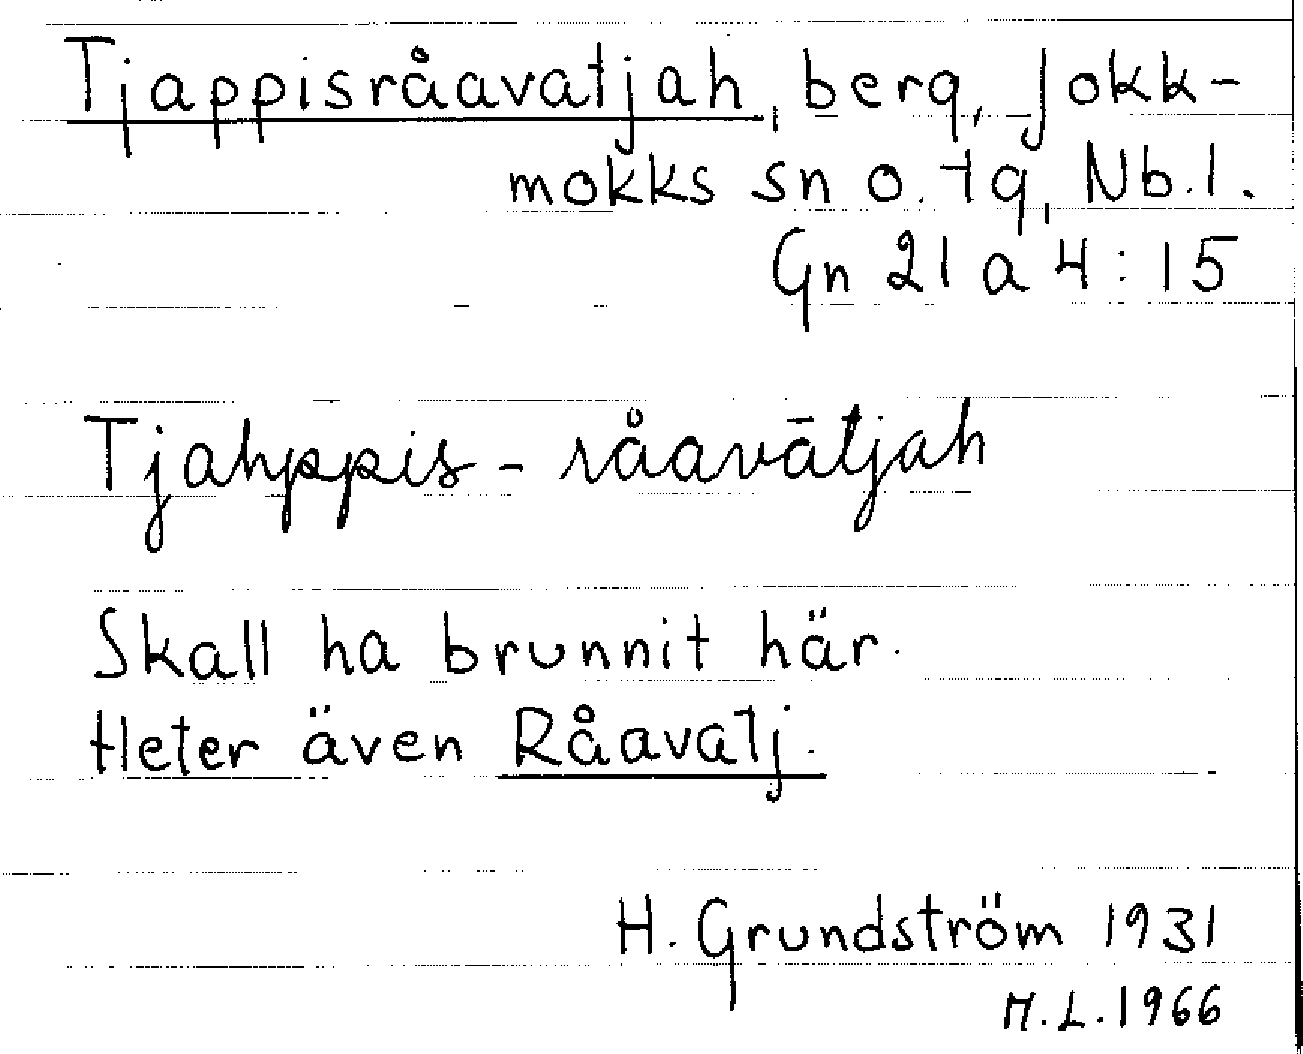 Tjappisråavatjah, berg, Jokk-
mokks sn o. tg, Nb.l.
Gn 21 a 4:15
Tjahppis-råavātjah
Skall ha brunnit här.
Heter även Råavatj.
H. Grundström 1931
M.L. 1966